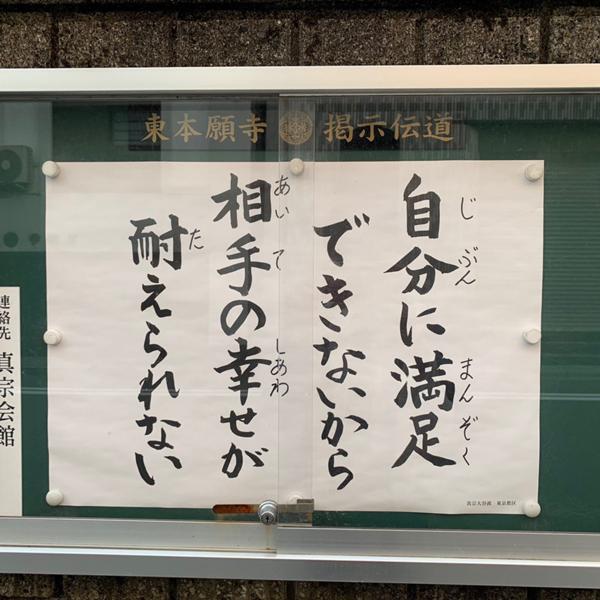 東本願寺 掲示伝道
自分に満足
じぶん まんぞく
できないから
相手の幸せが
あいて しあわ
耐えられない
た
真宗大谷派 東京教区
連絡先 真宗会館